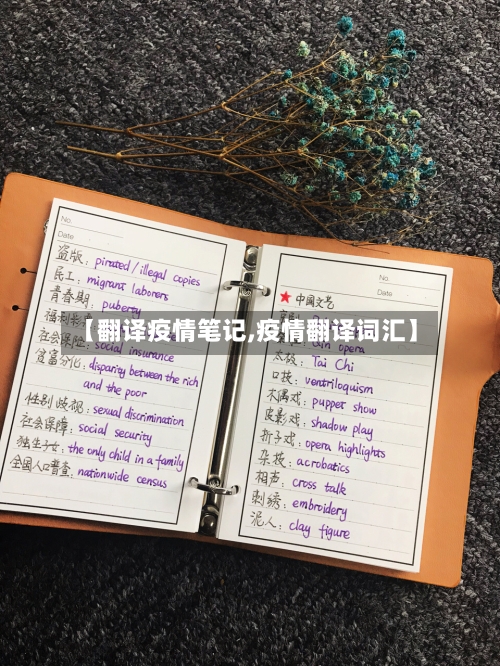 No.
Date
盗版: pirated/illegal copies
民工: migrant laborers
青春期: puberty
【翻译疫情笔记,疫情翻译词汇】
社会保险: social insurance
贫富分化: disparity between the rich
and the poor
性别歧视: sexual discrimination
社会保障: social security
独生子女: the only child in a family
全国人口普查: nationwide census
No.
Date
★ 中国文艺
opera
太极: Tai Chi
口技: ventriloquism
木偶戏: puppet show
皮影戏: shadow play
折子戏: opera highlights
杂技: acrobatics
相声: cross talk
刺绣: embroidery
泥人: clay figure